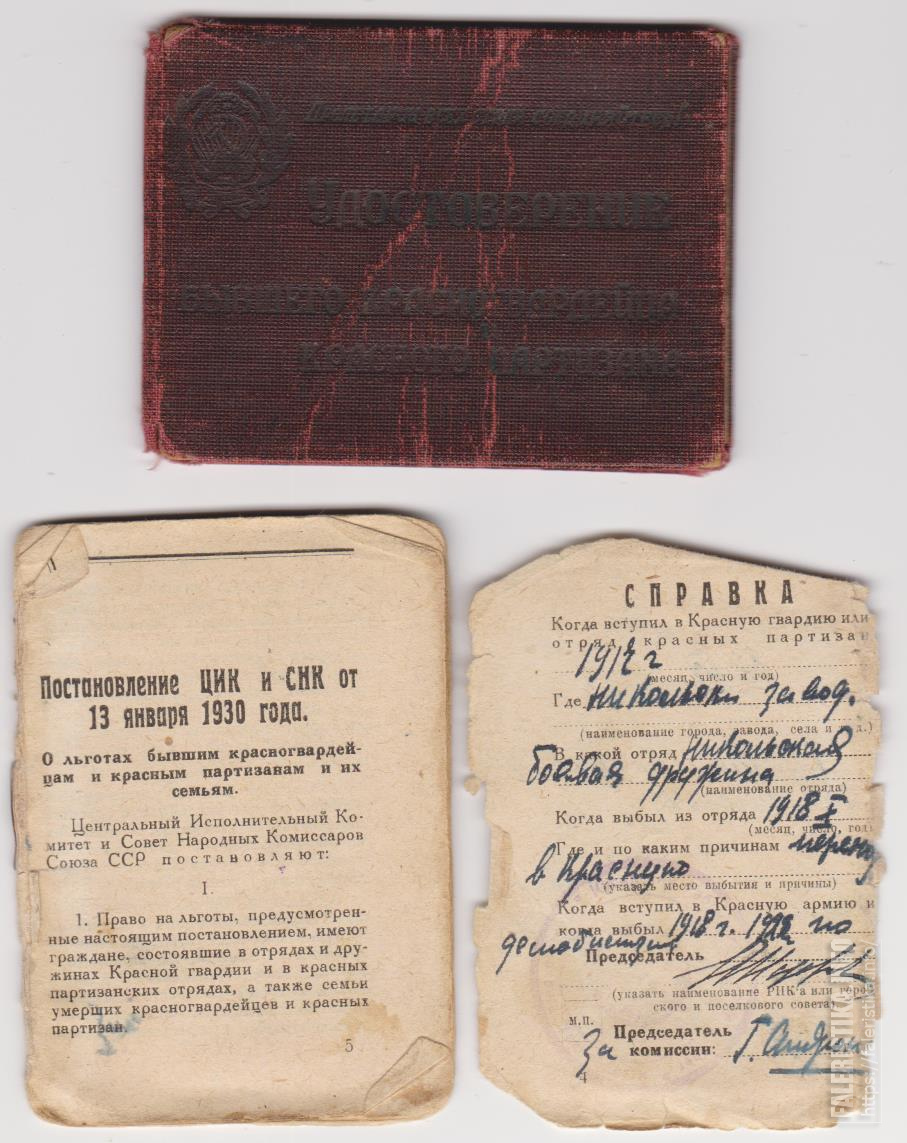 Пролетарии всех стран соединяйтесь!
Удостоверение
бывшего красногвардейца
и
красного партизана
Постановление ЦИК и СНК от
13 января 1930 года.
О льготах бывшим красногвардей-
цам и красным партизанам и их
семьям.
Центральный Исполнительный Ко-
митет и Совет Народных Комиссаров
Союза ССР постановляют:
I.
1. Право на льготы, предусмотрен-
ные настоящим постановлением, имеют
граждане, состоявшие в отрядах и дру-
жинах Красной гвардии и в красных
партизанских отрядах, а также семьи
умерших красногвардейцев и красных
партизан.
5
СПРАВКА
Когда вступил в Красную гвардию или
отряд красных партизан
(месяц, число и год)
Где завод.
(наименование города, завода, села и т.д.)
В какой отряд Никольская
боевая дружина
(наименование отряда)
Когда выбыл из отряда 1918 X
(месяц, число, год)
Где и по каким причинам
в Красную
(указать место выбытия и причины)
Когда вступил в Красную армию и
когда выбыл 1918 г. по
Председатель
(указать наименование РИК'а или город-
ского и поселкового совета)
М.П.
За Председатель
комиссии:
4
FALERISTIKA.INFO
https://faleristika.info